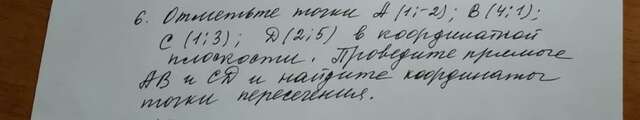 6. Отметьте точки А (1;-2); В (4;1);
С (1;3); D (2;5) в координатной
плоскости. Проведите прямые
АВ и CD и найдите координаты
точки пересечения.